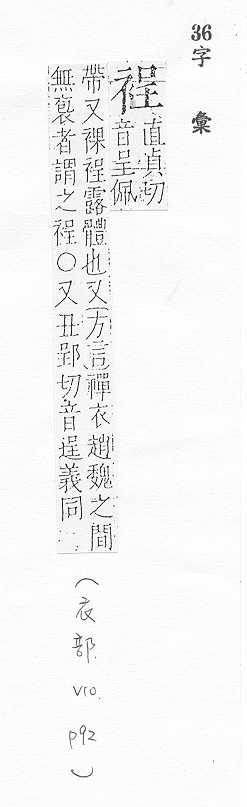 36字彙
裎 直貞切音呈佩
帶又裸裎露體也又方言禪衣趙魏之間
無袌者謂之裎○又丑郢切音逞義同
(衣部. V10. P92)